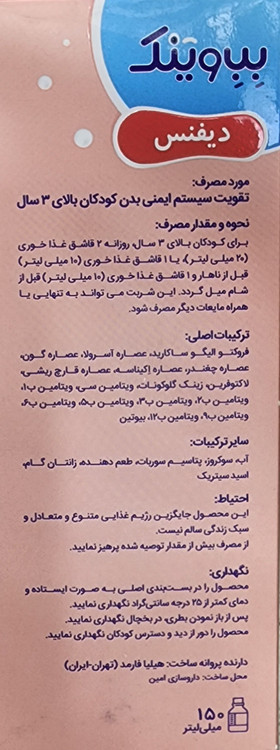 ببوینک
دیفنس
مورد مصرف:
تقویت سیستم ایمنی بدن کودکان بالای ۳ سال
نحوه و مقدار مصرف:
برای کودکان بالای ۳ سال، روزانه ۲ قاشق غذا خوری
(۲۰ میلی لیتر)، یا ۱ قاشق غذا خوری (۱۰ میلی لیتر)
قبل از ناهار و ۱ قاشق غذا خوری (۱۰ میلی لیتر) قبل از
شام میل گردد. این شربت می تواند به تنهایی یا
همراه مایعات دیگر مصرف شود.
ترکیبات اصلی:
فروکتو الیگو ساکارید، عصاره آسرولا، عصاره گون،
عصاره چغندر، عصاره اکیناسه، عصاره قارچ ریشی،
لاکتوفرین، زینک گلوکونات، ویتامین سی، ویتامین ب۱،
ویتامین ب۲، ویتامین ب۳، ویتامین ب۵، ویتامین ب۶،
ویتامین ب۹، ویتامین ب۱۲، بیوتین
سایر ترکیبات:
آب، سوکروز، پتاسیم سوربات، طعم دهنده، زانتان گام،
اسید سیتریک
احتیاط:
این محصول جایگزین رژیم غذایی متنوع و متعادل و
سبک زندگی سالم نیست.
از مصرف بیش از مقدار توصیه شده پرهیز نمایید.
نگهداری:
محصول را در بسته‌بندی اصلی به صورت ایستاده و
دمای کمتر از ۲۵ درجه سانتی‌گراد نگهداری نمایید.
پس از باز نمودن بطری، در یخچال نگهداری نمایید.
محصول را دور از دید و دسترس کودکان نگهداری نمایید.
دارنده پروانه ساخت: هیلیا فارمد (تهران-ایران)
محل ساخت: داروسازی امین
۱۵۰
میلی‌لیتر